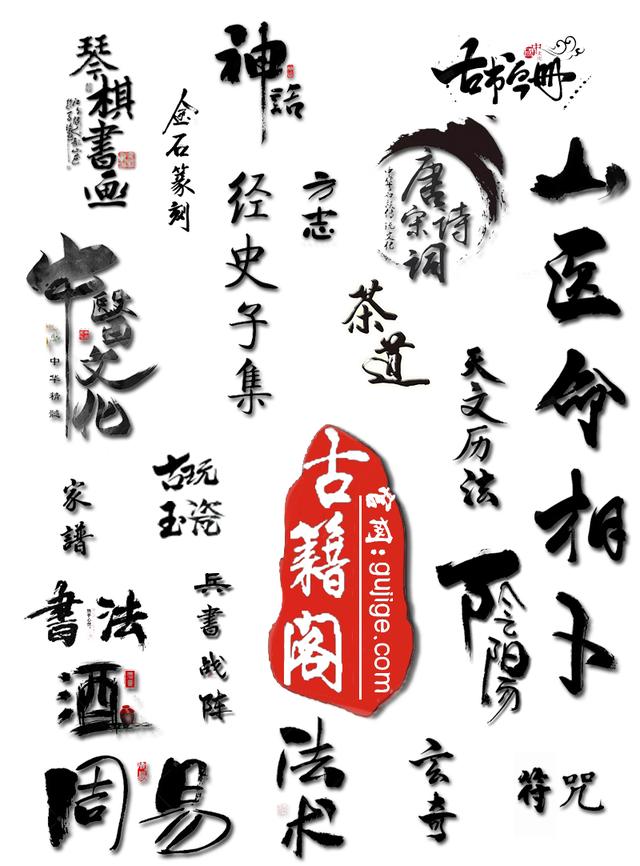 琴棋书画
神話
古书今册
金石篆刻
经史子集
方志
唐宋诗词
山医命相卜
中醫文化
中华精髓
茶道
天文历法
古玩玉瓷
家譜
古籍阁
官网:gujige.com
陰陽
書法
兵書战阵
酒
周易
法术
玄奇
符咒